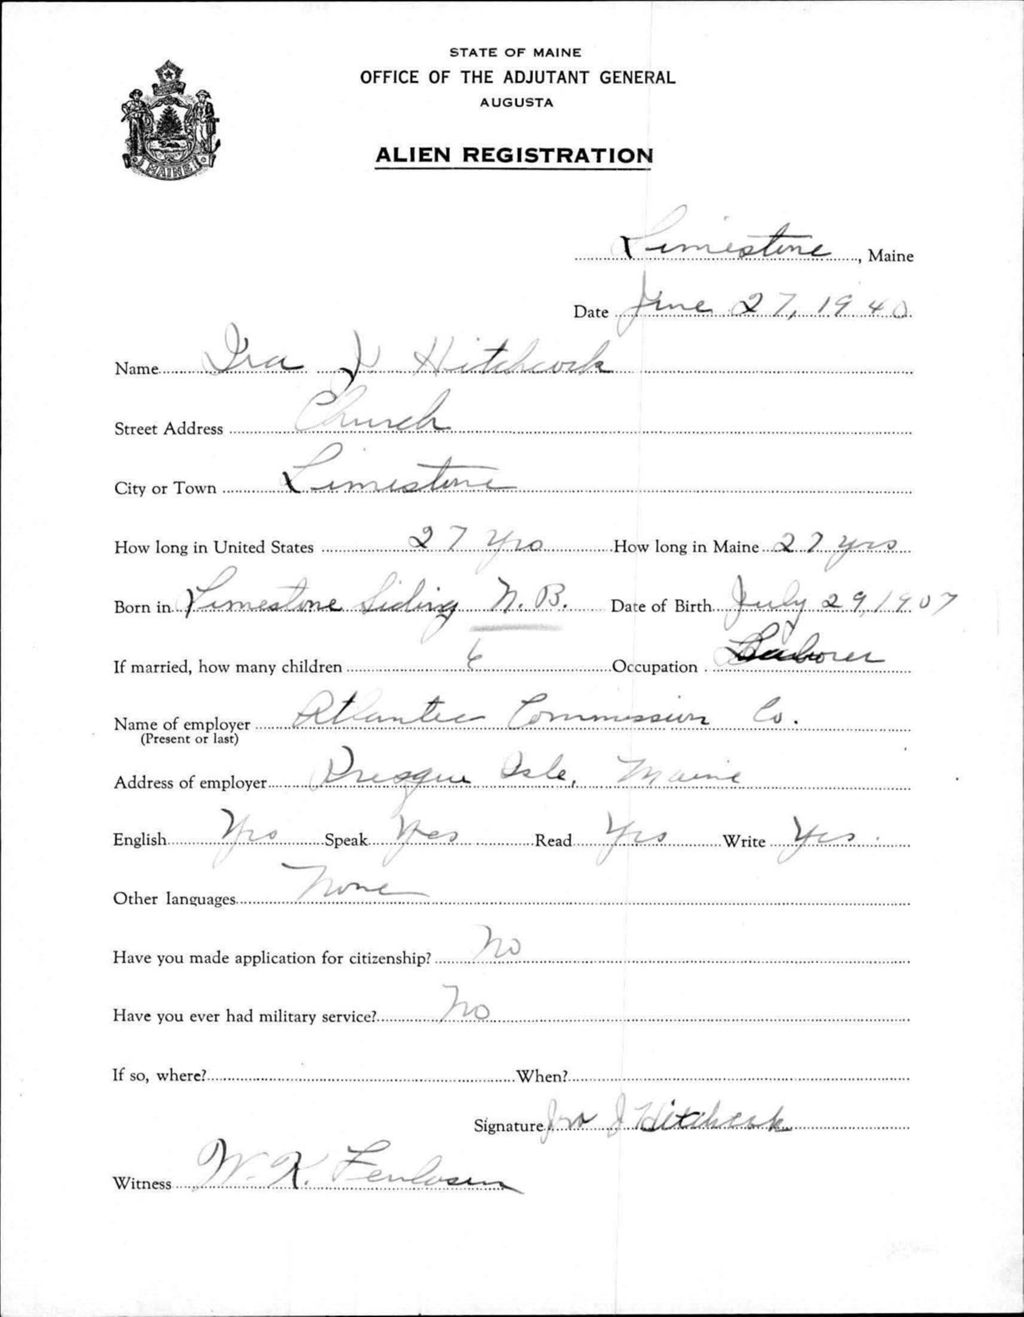 STATE OF MAINE
OFFICE OF THE ADJUTANT GENERAL
AUGUSTA
ALIEN REGISTRATION
MAINE
Limestone, Maine
Date June 27, 1940
Name Ira J Hitchcock
Street Address Church
City or Town Limestone
How long in United States 27 yrs How long in Maine 27 yrs
Born in Limestone Siding N.B. Date of Birth July 29, 1907
If married, how many children 6 Occupation Laborer
Name of employer Atlantic Commission Co.
(Present or last)
Address of employer Presque Isle, Maine
English Yes Speak Yes Read Yes Write Yes
Other languages None
Have you made application for citizenship? No
Have you ever had military service? No
If so, where? When?
Signature Ira J Hitchcock
Witness W. K.